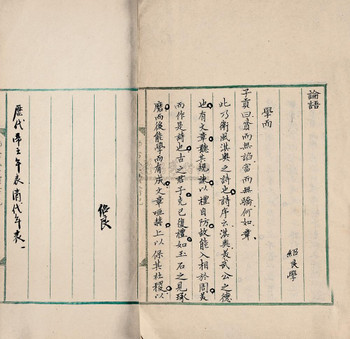 論語
紹良學
學而
子貢曰貧而無諂富而無驕何如章
此乃衛風淇奧之詩也詩序云淇奧美武公之德
也有文章聽其規諫以禮自防故能入相於周美
而作是詩也古之君子克己復禮如玉石之見琢
磨而後能學而有成文章
上以保其社稷以
歷代帝王年表